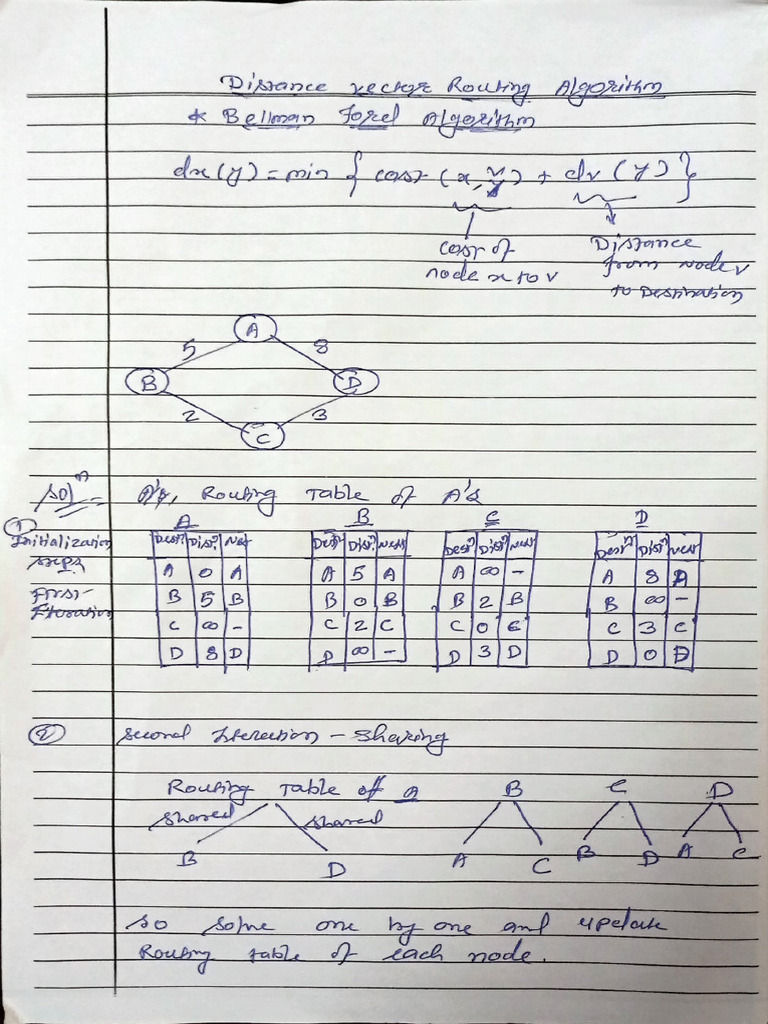 Distance vector Routing Algorithm
* Bellman Ford Algorithm
dx(y) = min { cost (x, v) + dv (y) }
cost of
node x to v
Distance
from node v
to Destination
A
5 8
B D
2 3
C
Solⁿ - A's, Routing Table of A's
① Initialization steps First-Iteration
A B C D
Destⁿ Distⁿ Next Destⁿ Distⁿ Next Destⁿ Distⁿ Next Destⁿ Distⁿ Next
A 0 A A 5 A A ∞ - A 8 A
B 5 B B 0 B B 2 B B ∞ -
C ∞ - C 2 C C 0 C C 3 C
D 8 D D ∞ - D 3 D D 0 D
② Second Iteration - Sharing
Routing Table of A B C D
shared shared
B D A C B D A C
so solve one by one and update
Routing table of each node.